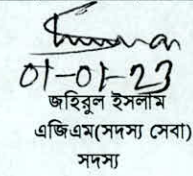 01-01-23
জহিরুল ইসলাম
এজিএম(সদস্য সেবা)
সদস্য